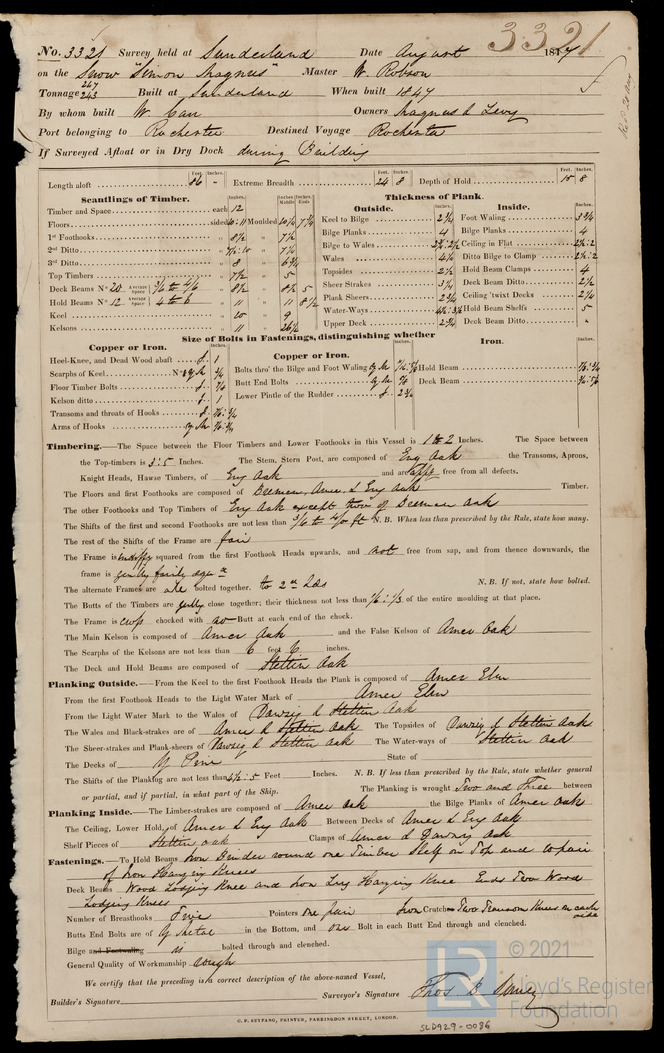 3321
No. 3321 Survey held at Sunderland Date August 1847
on the Snow "Simon Magnus" Master W. Robson
Tonnage 247 243 Built at Sunderland When built 1847
By whom built W. Carr Owners Magnus & Levy
Port belonging to Rochester Destined Voyage Rochester
If Surveyed Afloat or in Dry Dock during Building
Length aloft 86 - Extreme Breadth 24 8 Depth of Hold 15 8
Scantlings of Timber.
Timber and Space each 12
Floors sided 10:11 Moulded 10½ 7¾
1st Foothooks " 8½ " 7½
2nd Ditto " 7½:10 " 7¼
3rd Ditto " 8 " 6¾
Top Timbers " 7½ " 5
Deck Beams No 20 Average Space 3/6 to 4/6 " 8½ 8½ 5
Hold Beams No 12 Average Space 4 to 6 " 11 " 11 8½
Keel " 10 " 9
Kelsons " 11 " 26½
Thickness of Plank.
Outside. Inside.
Keel to Bilge 2¾ Foot Waling 3¾
Bilge Planks 4 Bilge Planks 4
Bilge to Wales Ceiling in Flat
Wales 4¼ Ditto Bilge to Clamp
Topsides 2½ Hold Beam Clamps 4
Sheer Strakes 3¼ Deck Beam Ditto 2¾
Plank Sheers 2¾ Ceiling 'twixt Decks 2¼
Water-Ways Hold Beam Shelfs 5
Upper Deck 2¾ Deck Beam Ditto -
Size of Bolts in Fastenings, distinguishing whether
Copper or Iron. Copper or Iron. Iron.
Heel-Knee, and Dead Wood abaft 1
Scarphs of Keel No 8 ¾
Floor Timber Bolts 7/8
Kelson ditto 1
Transoms and throats of Hooks 7/8:¾
Arms of Hooks
Bolts thro' the Bilge and Foot Waling
Butt End Bolts
Lower Pintle of the Rudder 2¾
Hold Beam 7/8:¾
Deck Beam ¾:5/8
Timbering.—The Space between the Floor Timbers and Lower Foothooks in this Vessel is 1 to 2 Inches. The Space between
the Top-timbers is 3:5 Inches. The Stem, Stern Post, are composed of Eng Oak the Transoms, Aprons,
Knight Heads, Hawse Timbers, of Eng Oak and are free from all defects.
The Floors and first Foothooks are composed of Bremen, Amer, & Eng Oak Timber.
The other Foothooks and Top Timbers of Eng Oak except two of Bremen Oak
The Shifts of the first and second Foothooks are not less than 3/6 to 4/0 ft N.B. When less than prescribed by the Rule, state how many.
The rest of the Shifts of the Frame are fair
The Frame is squared from the first Foothook Heads upwards, and not free from sap, and from thence downwards, the
frame is fairly
The alternate Frames are all bolted together. to 2nd N.B. If not, state how bolted.
The Butts of the Timbers are close together; their thickness not less than 1/6:1/3 of the entire moulding at that place.
The Frame is chocked with no Butt at each end of the chock.
The Main Kelson is composed of Amer Oak and the False Kelson of Amer Oak
The Scarphs of the Kelsons are not less than 6 feet 6 inches.
The Deck and Hold Beams are composed of Stettin Oak
Planking Outside.—From the Keel to the first Foothook Heads the Plank is composed of Amer Elm
From the first Foothook Heads to the Light Water Mark of Amer Elm
From the Light Water Mark to the Wales of Danzig & Stettin Oak
The Wales and Black-strakes are of Amer & Stettin Oak The Topsides of Danzig & Stettin Oak
The Sheer-strakes and Plank-sheers of Danzig & Stettin Oak The Water-ways of Stettin Oak
The Decks of Y Pine State of
The Shifts of the Planking are not less than 4½:5 Feet Inches. N.B. If less than prescribed by the Rule, state whether general
or partial, and if partial, in what part of the Ship. The Planking is wrought Two and Three between
Planking Inside.—The Limber-strakes are composed of Amer Oak the Bilge Planks of Amer Oak
The Ceiling, Lower Hold, of Amer & Eng Oak Between Decks of Amer & Eng Oak
Shelf Pieces of Stettin Oak Clamps of Amer & Danzig Oak
Fastenings.—To Hold Beams Iron Binder round one Timber Shelf on Top and 10 pair
of Iron Hanging Knees
Deck Beams Wood Lodging Knee and Iron Long Hanging Knee Ends Two Wood
Lodging Knees
Number of Breasthooks Five Pointers One pair Iron Crutches Two Transom Knees on each side
Butts End Bolts are of Y Metal in the Bottom, and one Bolt in each Butt End through and clenched.
Bilge and Footwaling is bolted through and clenched.
General Quality of Workmanship rough
We certify that the preceding is a correct description of the above-named Vessel,
Builder's Signature Surveyor's Signature Thos
C. F. SEYFANG, PRINTER, FARRINGDON STREET, LONDON.
SLD929-0086
LR © 2021
Lloyd's Register
Foundation